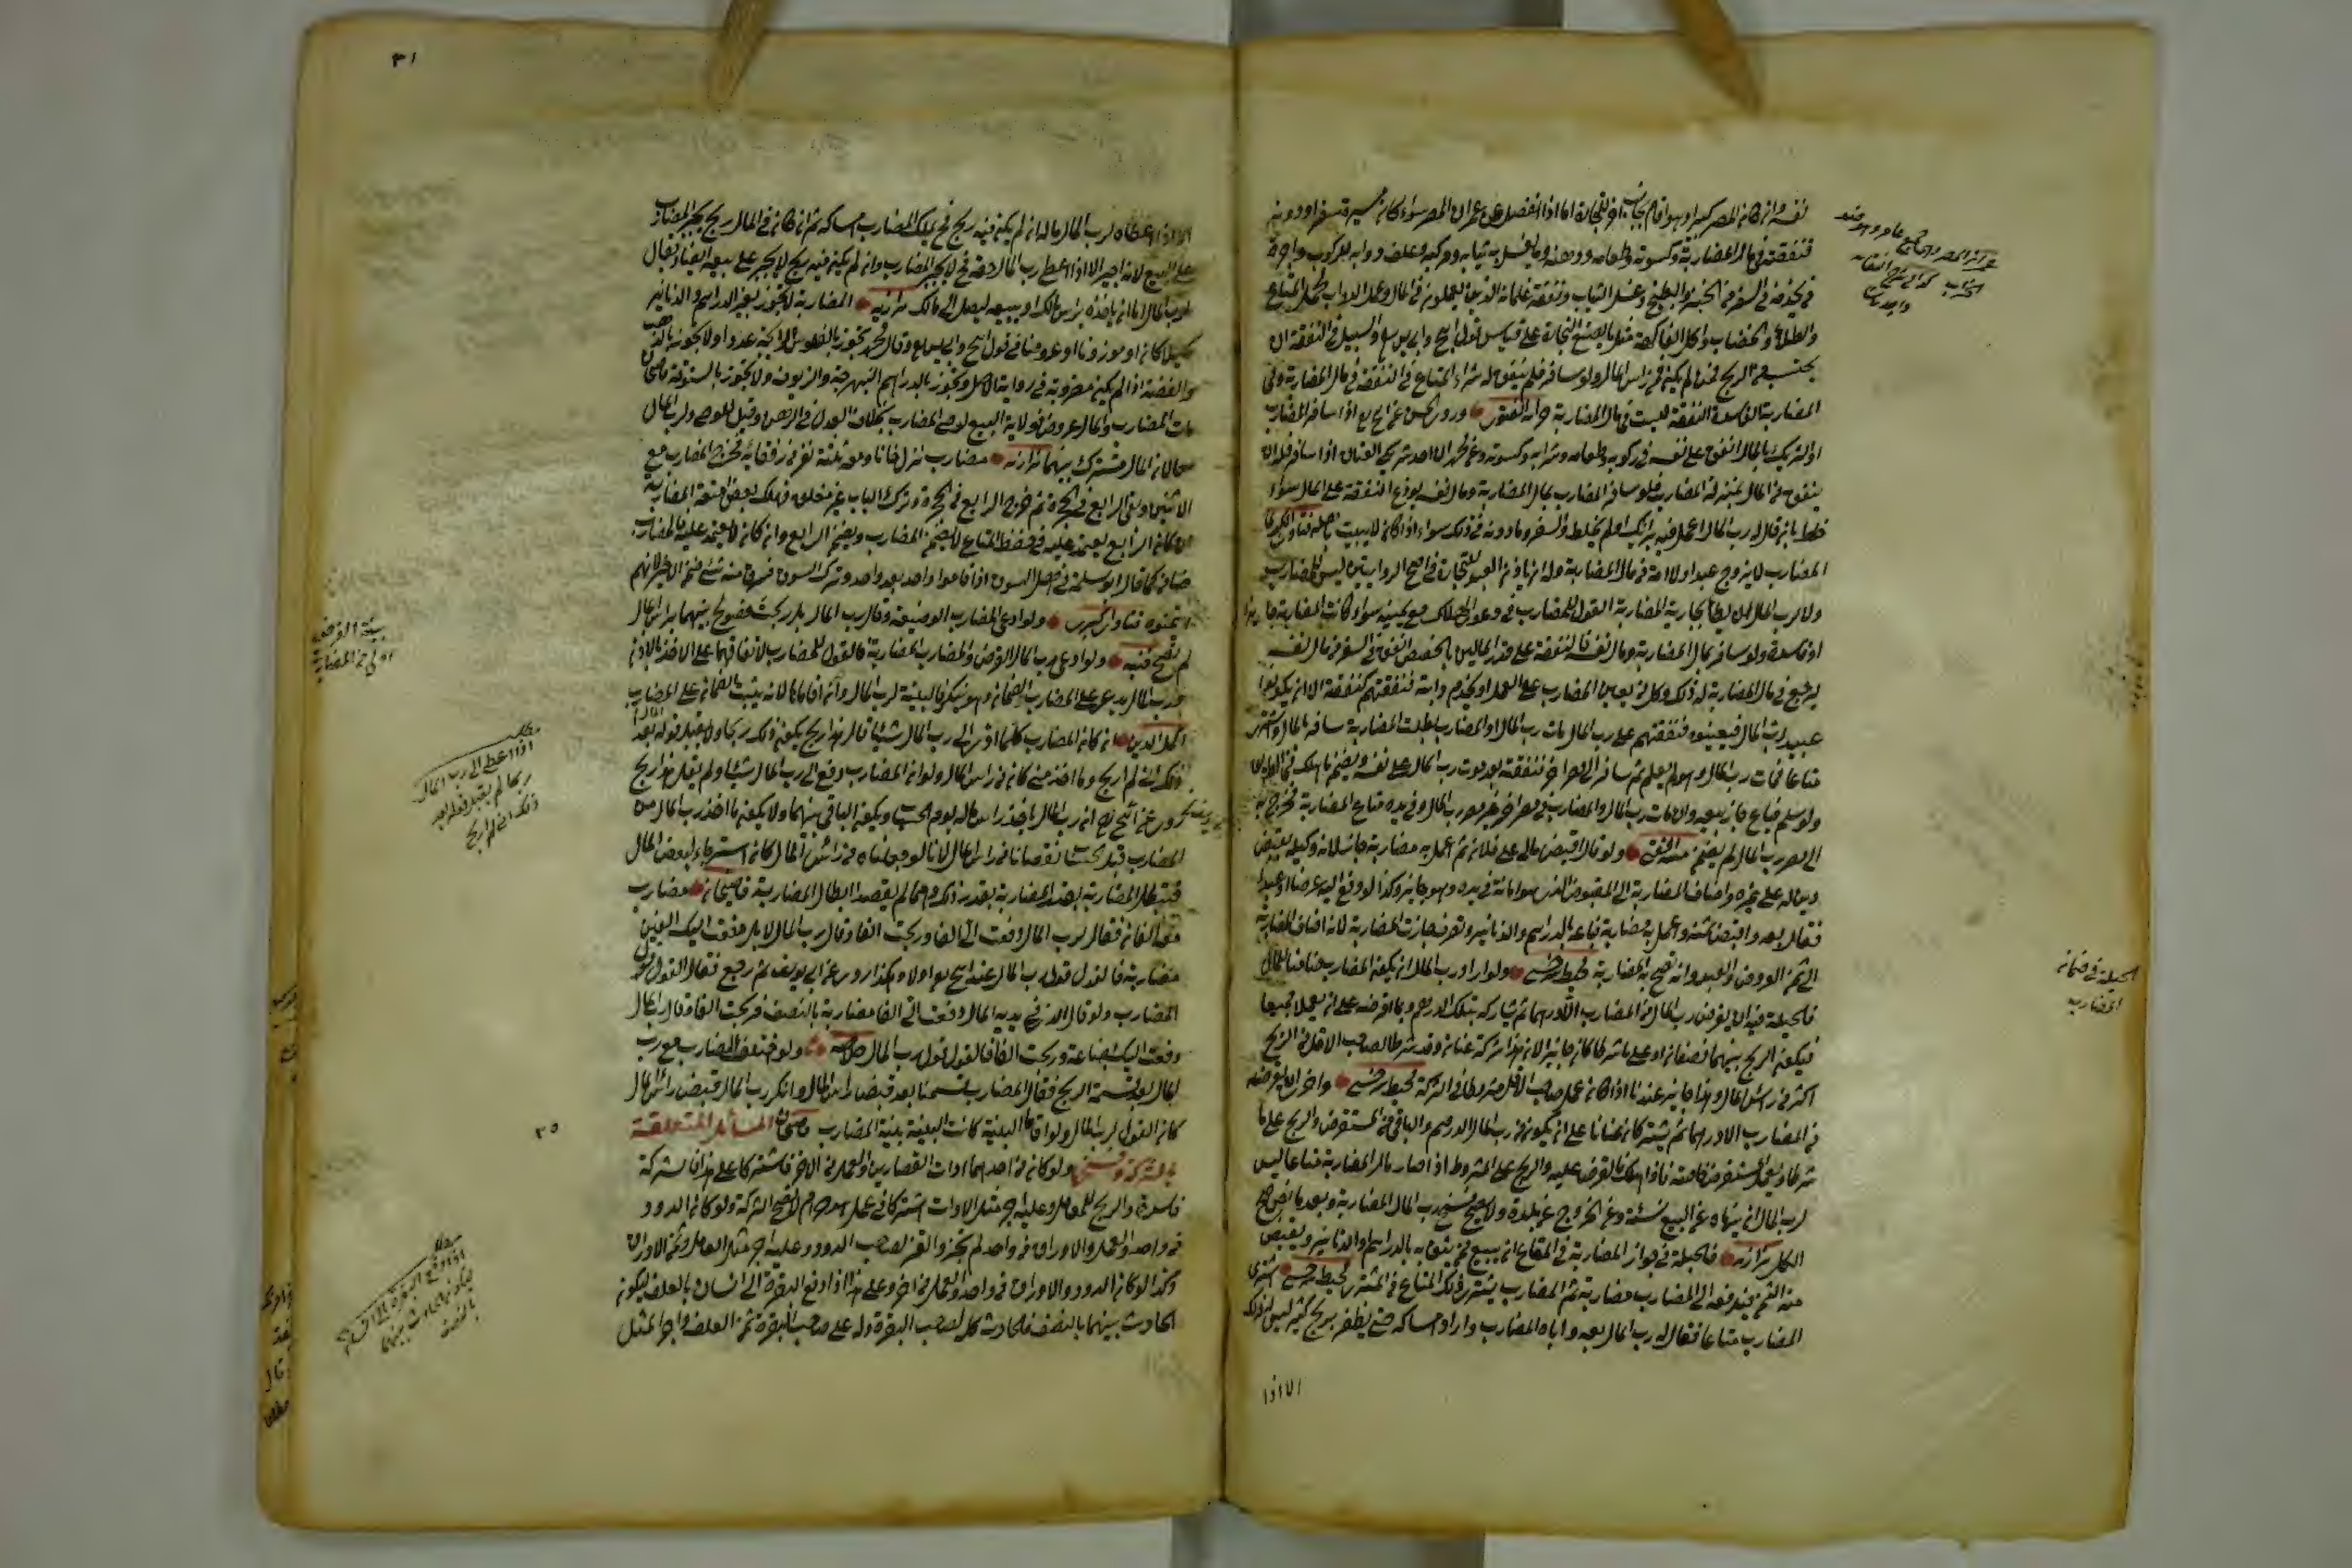 نفسه وان كان المصر كبيرا وهو اقام بجانب اخر للتجارة اما اذا انفصل عن عمران المصر سواء كان مسيرة سفر او دونه
فنفقته في مال المضاربة وكسوته وطعامه ودهنه وما يغسل به ثيابه ومركبه وعلف دوابه للركوب واجرة
من يخدمه في السفر من الخبز والطبخ وغسل الثياب ونفقة غلمانه الذين يعملون في المال وعلف الدواب لحمل المتاع
والطلاء والخضاب واكل الفاكهة مثل ما يصنع التجار على قياس قول ابي ح وابي يوسف والسبيل في النفقة ان
يحتسب من الربح فان لم يكن فمن راس المال ولو سافر فلم يتفق له شراء المتاع فالنفقة في مال المضاربة وفي
المضاربة الفاسدة النفقة ليست في مال المضاربة وروى الحسن عن ابي ح اذا سافر المضارب
او الشريك بالمال انفق على نفسه في ركوبه وطعامه وشرابه وكسوته وعن محمد ان احد شريكي العنان اذا سافر فله ان
ينفق من المال بمنزلة المضارب فلو سافر المضارب بمال المضاربة ومال نفسه يوزع النفقة على المال سواء
خلط بان قال له رب المال اعمل فيه برايك او لم يخلط والسفر وما دونه في ذلك سواء اذا كان لا يبيت باهله فتاوى
المضارب لا يزوج عبدا ولا امة من مال المضاربة وله ان ياذن العبد للتجارة في اصح الروايتين ليس للمضارب
ولا لرب المال ان يطا جارية المضاربة القول للمضارب في دعوى الهلاك مع يمينه سواء كانت المضاربة جائزة
او فاسدة ولو سافر بمال المضاربة ومال نفسه فالنفقة على قدر المالين بالحصص انفق في السفر من مال نفسه
ليرجع في مال المضاربة له ذلك وكل من يعين المضارب على العمل او يخدمه او دابته فنفقتهم كنفقته الا ان يكونوا
عبيد رب المال فيعينوه فنفقتهم على رب المال مات رب المال او المضارب بطلت المضاربة سافر بالمال واشترى
متاعا فمات رب المال وهو لم يعلم ثم سافر الى مصر اخر فنفقته بعد موت رب المال على نفسه ويضمن ما هلك في الطريق
ولو سلم فباع جاز بيعه ولو مات رب المال والمضارب في مصر اخر غير مصر رب المال وفي يده متاع المضاربة فخرج به
الى مصر رب المال لم يضمن ولو قال اقبض مالي على فلان ثم اعمل به مضاربة جاز لانه وكيله بقبض
دين له على غيره واضاف المضاربة الى المقبوض الذي هو امانة في يده وهو جائز وكذا لو دفع اليه عرضا او عبدا
فقال بعه واقبض ثمنه واعمل به مضاربة فباعه بالدراهم والدنانير وتصرف جازت المضاربة لانه اضاف المضاربة
الى ثمن العروض والعبد وانه تصح به المضاربة محيط سرخسي ولو اراد رب المال ان يكون المضارب ضامنا للمال
فالحيلة فيه ان يقرض رب المال من المضارب الا درهما ثم يشاركه بتلك الدرهم وبما اقرضه على ان يعملا جميعا
فيكون الربح بينهما نصفان او على ما شرطا كان جائزا لان هذا شركة عنان وقد شرطا لصاحب الاقل من الربح
اكثر من راس المال وهذا جائز عندنا اذا كان عمل صاحب الاقل مشروطا في الشركة محيط سرخسي واخرى ان يقرضه
من المضارب الا درهما ثم يشتركان عنانا على ان يكون من رب المال الدرهم والباقي من المستقرض والربح على ما
شرطا ويعمل المستقرض خاصة فاذا هلك فالقرض عليه والربح على المشروط اذا صار مال المضاربة متاعا ليس
لرب المال ان ينهاه عن البيع نسئة وعن الخروج عن بلدة ولا يصح فسخ رب المال المضاربة وبعد ما نض صح
الكل بزازيه فالحيلة في جواز المضاربة في المتاع ان يبيع ممن يثق به بالدراهم والدنانير ويقبض
منه الثمن فيدفعه الى المضارب مضاربة ثم المضارب يشتري ذلك المتاع من المشتري محيط سرخسي اشترى
المضارب متاعا فقال له رب المال بعه واباه المضارب واراد امساكه حتى يظفر بربح كثير ليس له ذلك
الا اذا
الحيلة في ضمان
المضارب
٣١
الا اذا اعطاه لرب المال ماله ان لم يكن فيه ربح فح يملك المضارب امساكه ثم ان كان في المال ربح يجبر المضارب
على البيع لانه اجير الا اذا اعطى رب المال حقه فح لا يجبر المضارب وان لم يكن فيه ربح لا يجبر على بيعه ايضا ويقال
لرب المال اما ان ياخذه براس مالك او يبيعه ليصل الى مالك بزازيه المضاربة لا تجوز بغير الدراهم والدنانير
مكيلا كان او موزونا او عروضا في قول ابي ح وابي يوسف وقال محمد تجوز بالفلوس الرايجة عددا ولا تجوز بالذهب
والفضة اذا لم يكن مضروبة في رواية الاصل وتجوز بالدراهم النبهرجة والزيوف ولا تجوز بالستوقة قاضيخان
مات المضارب والمال عروض فولاية البيع لوصي المضارب بخلاف العدل في الرهن وقيل للوصي ولرب المال
لان المال مشترك بينهما بزازيه مضارب نزل خانا ومعه ثلثة نفر من رفقائه فخرج المضارب مع
الاثنين وبقي الرابع في الحجرة ثم خرج الرابع من الحجرة وترك الباب غير مغلق فهلك بعض امتعة المضاربة
ان كان الرابع يعتمد عليه في حفظ المتاع لا يضمن المضارب ويضمن الرابع وان كان لا يعتمد عليه فالمضارب
ضامن كما قالوا في مسئلة في اهل السوق اذا قاموا واحد بعد واحد وترك السوق فسرق منه شئ ضمن الاخير لانهم
ائتمنوه فتاوى كبرى ولو ادعى المضارب الوضيعة وقال رب المال بل ربحت فصولح بينهما براس المال
لم تصح قنيه ولو ادعى رب المال القرض والمضارب المضاربة فالقول للمضارب لاتفاقهما على الاخذ بالاذن
ورب المال يدعي على المضارب الضمان وهو ينكر فالبينة لرب المال وان اقاما لانه يثبت الضمان على المضارب
اكمل الدين ان كان المضارب كلما ادى الى رب المال شيئا قال هذا ربح يكون ذلك ربحا ولا يقبل قوله بعد
ذلك اني لم اربح وما اخذ مني كان من راس المال ولو ان المضارب دفع الى رب المال شيئا ولم يقل هذا ربح
روي عن ابي ح انه رب المال ياخذ راس ماله يوم الحساب ويكون الباقي بينهما ولا يكون ما اخذ رب المال من
المضارب قبل الحساب نقصانا من راس المال لانا لو جعلناه من راس المال كان استرجاعا لبعض المال
فتبطل المضاربة بقدر ذلك وهما لم يقصدا ابطال المضاربة قاضيخان مضارب
معه الفان فقال لرب المال دفعت الي الفا وربحت الفا وقال رب المال لا بل دفعت اليك الفين
مضاربة فالقول قول رب المال عند ابي ح اولا وهكذا روي عن ابي يوسف ثم رجع فقال القول قول
المضارب ولو قال الذي في يديه المال دفعت الي الفا مضاربة بالنصف فربحت الفا وقال رب المال
دفعت اليك بضاعة وربحت الفا فالقول قول رب المال خلاصه ولو اختلف المضارب مع رب
المال بعد قسمة الربح فقال المضارب قسمنا بعد قبض راس المال وانكر رب المال قبض راس المال
كان القول لرب المال ولو اقاما البينة كانت البينة بينة المضارب قاضيخان المسائل المتعلقة
بالشركة ولو كان من احدهما ادات القصارين والعمل من الاخر فاشتركا على هذا فالشركة
فاسدة والربح للعامل وعليه اجر مثل الادات اشتركا في عمل هو حرام لا تصح الشركة ولو كان الدود
من واحد والعمل والاوراق من واحد لم يجز والقز لصاحب الدود وعليه اجر مثل العامل وثمن الاوراق
وكذا لو كان الدود والاوراق من واحد والعمل من اخر وعلى هذا اذا دفع البقرة الى انسان بالعلف ليكون
الحادث بينهما بالنصف فالحادث كله لصاحب البقرة وله على صاحب البقرة ثمن العلف واجر المثل
بينة القرض
اولى من المضاربة
مطلب
اذا اعطى الى رب المال
ربحا لم يقبل قوله بعد
ذلك اني لم اربح
٢٥
مطلب
اذا دفع البقرة الى اخر
ليكون الحادث بينهما
بالنصف